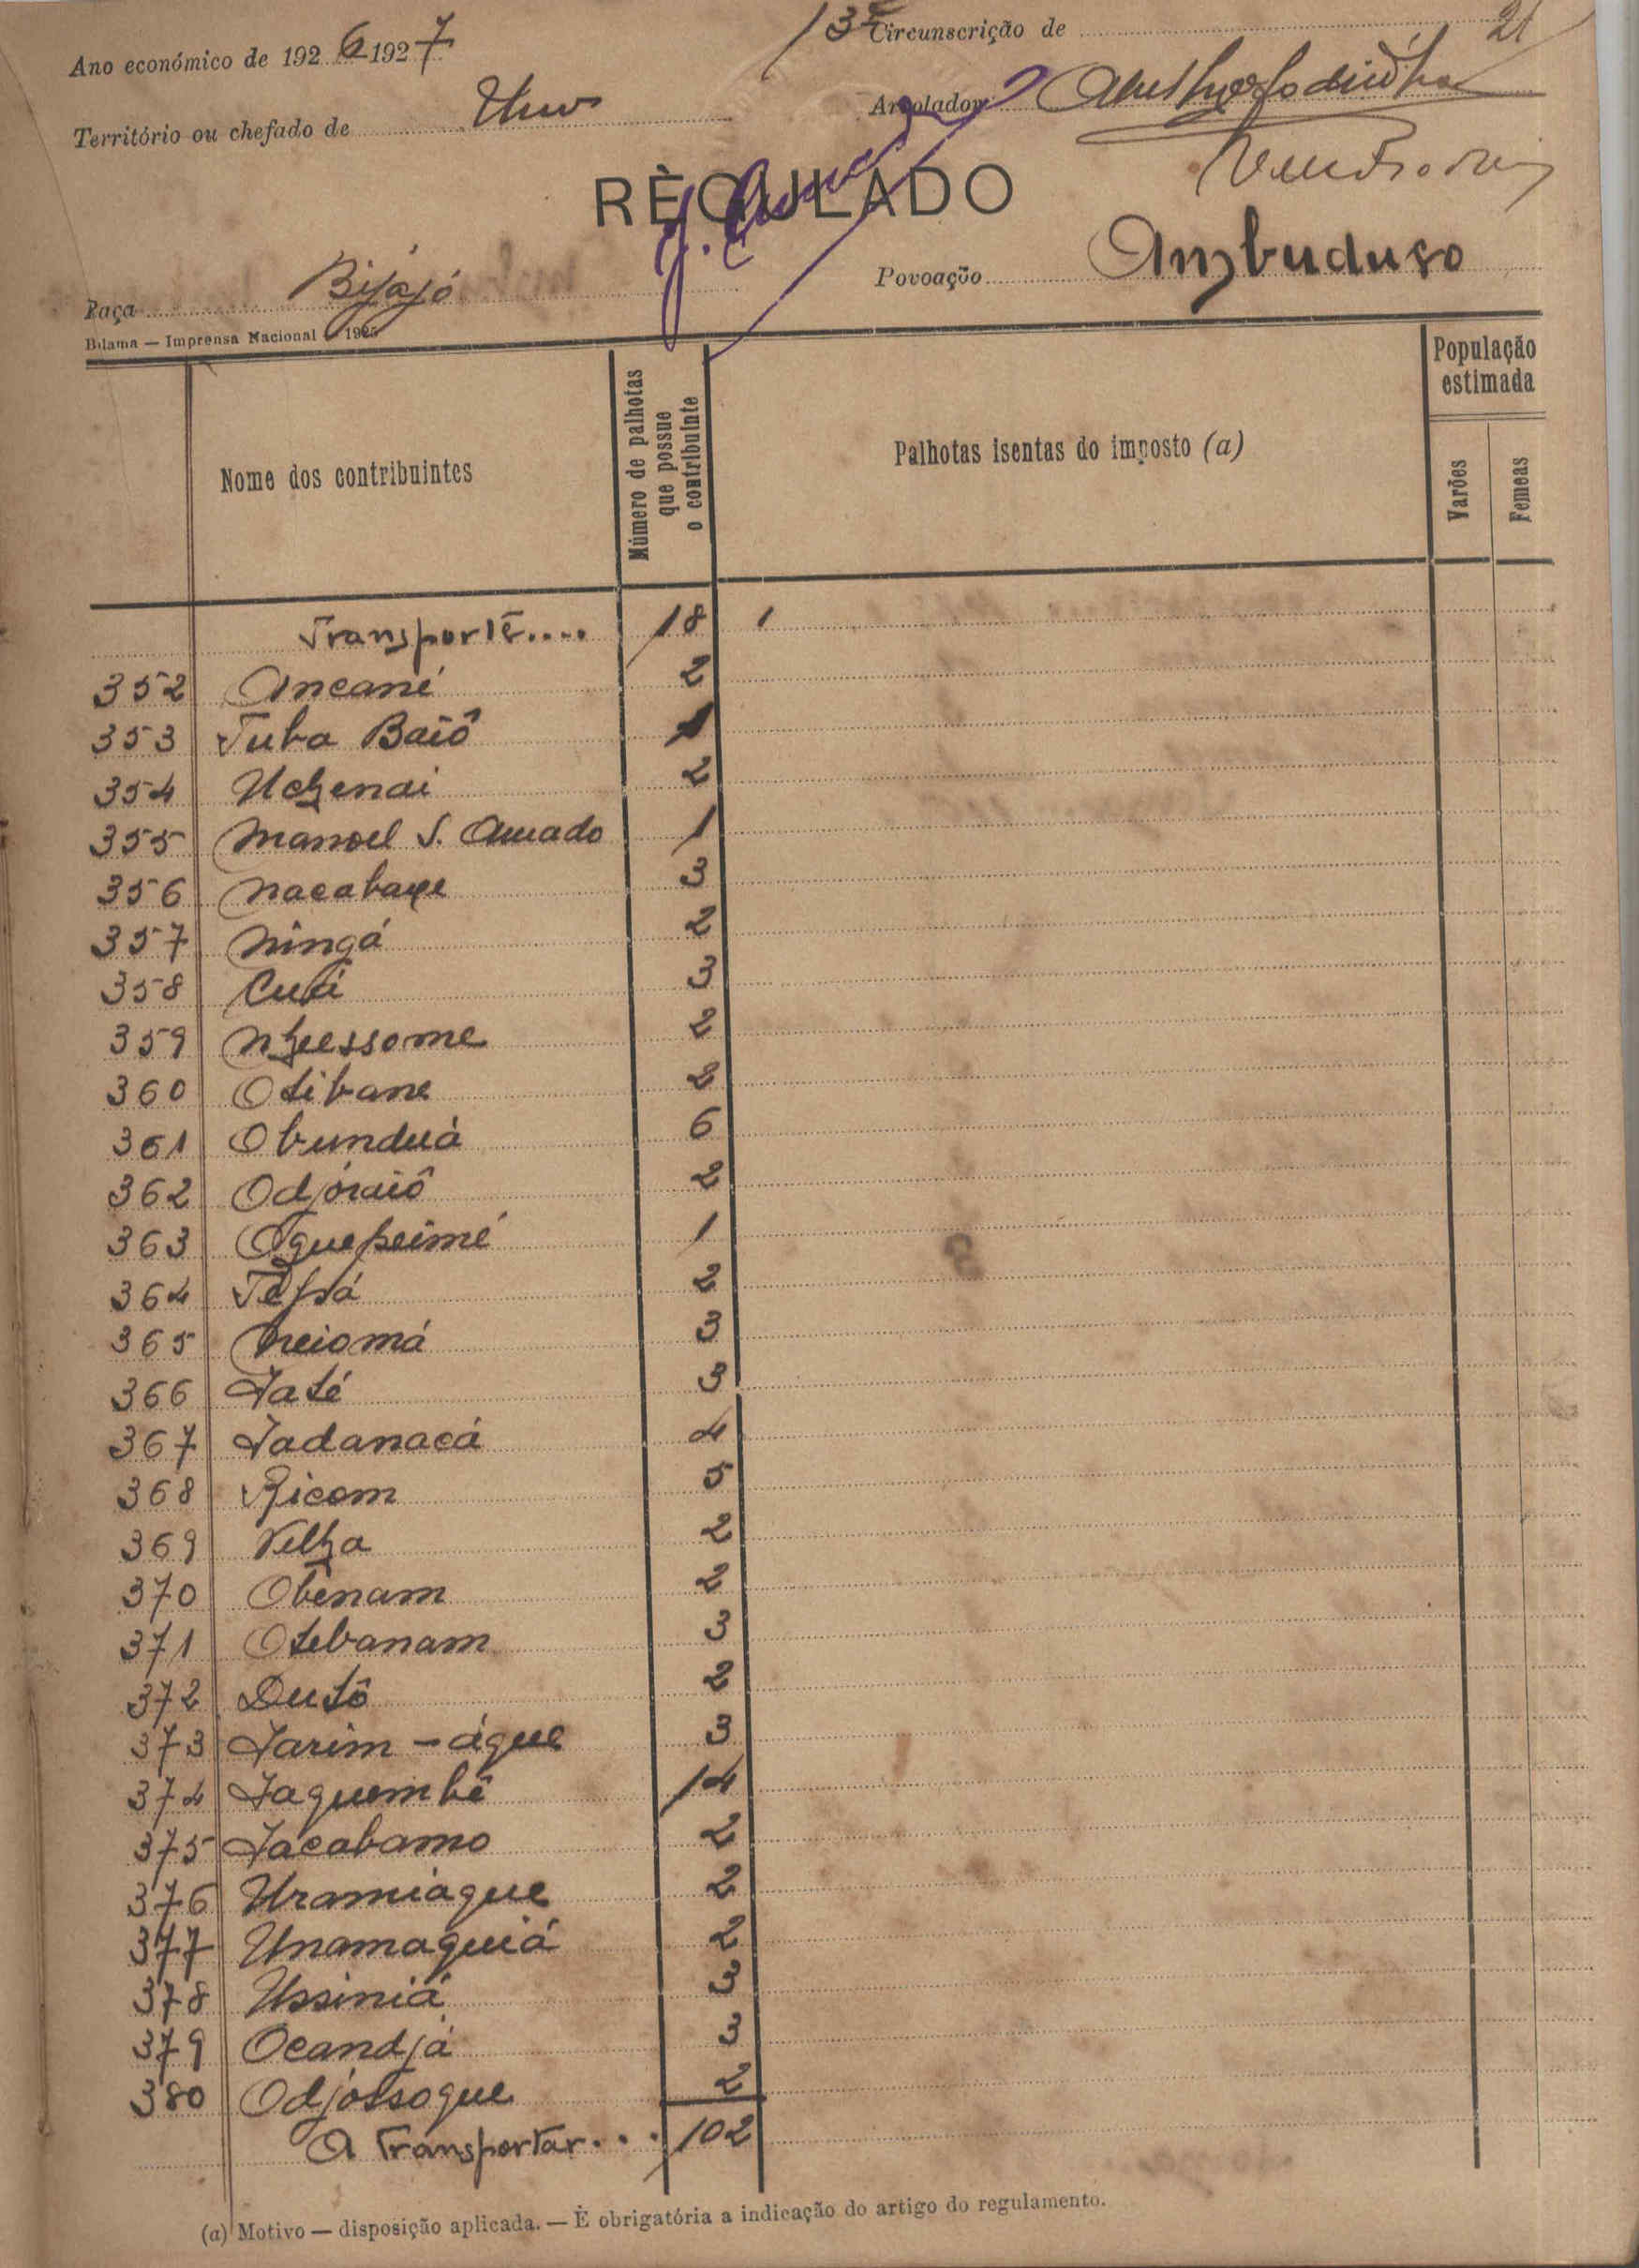 Ano económico de 1926 1927
13ª Circunscrição de 21
Território ou chefado de Uno
Arrolador
RÈGULADO
Raça Bijàjó
Povoação Anhuduço
Bolama — Imprensa Nacional — 1925
Nome dos contribuintes
Número de palhotas que possue o contribuinte
Palhotas isentas do imposto (a)
População estimada
Varões
Femeas
Transporte.... 18 1
352 Ancané 2
353 Tuba Baiô 1
354 Uchenai 2
355 Manoel S. Amado 1
356 Nacabaxe 3
357 Ningá 2
358 3
359 Nhuessome 2
360 Otibane 2
361 Obunduà 6
362 Odjóraiô 2
363 Oguepeimé 1
364 2
365 Neiomá 3
366 Jaté 3
367 Jadanacá 4
368 Ricom 5
369 Velha 2
370 Obenam 2
371 Otebanam 3
372 Dutô 2
373 Jarim-águe 3
374 Jaquembê 14
375 Jacabamo 2
376 Uramiàgue 2
377 Unamaquiá 2
378 Ussiniá 3
379 Ocandjà 3
380 Odjossogue 2
A Transportar... 102
(a) Motivo — disposição aplicada. — È obrigatória a indicação do artigo do regulamento.